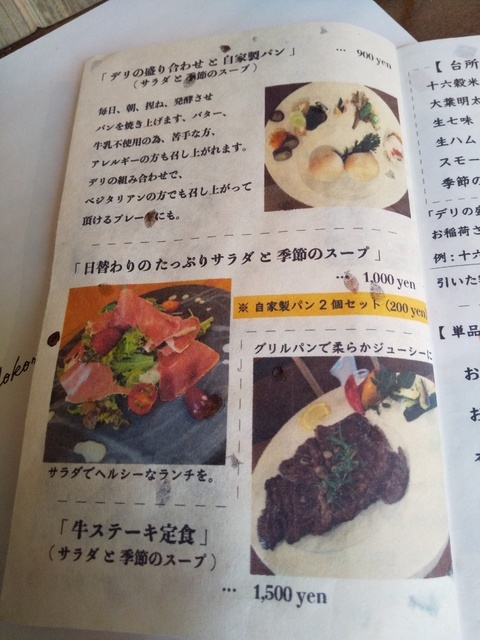 「デリの盛り合わせ と 自家製パン」
(サラダと季節のスープ)
… 900 yen
毎日、朝、捏ね、発酵させ
パンを焼き上げます、バター、
牛乳不使用の為、苦手な方、
アレルギーの方も召し上がれます。
デリの組み合わせで、
ベジタリアンの方でも召し上がって
頂けるプレートにも。
「日替わりの たっぷりサラダ と 季節のスープ 」
… 1,000 yen
※ 自家製パン 2 個セット (200 yen)
グリルパンで柔らかジューシーに
サラダでヘルシーなランチを。
「牛ステーキ定食 」
( サラダ と 季節のスープ )
… 1,500 yen
【 台所
十六穀米
大葉明太
生七味
生ハム
スモー
季節の
「デリの
お稲荷さ
例：十六
引いた
【 単品
お
お